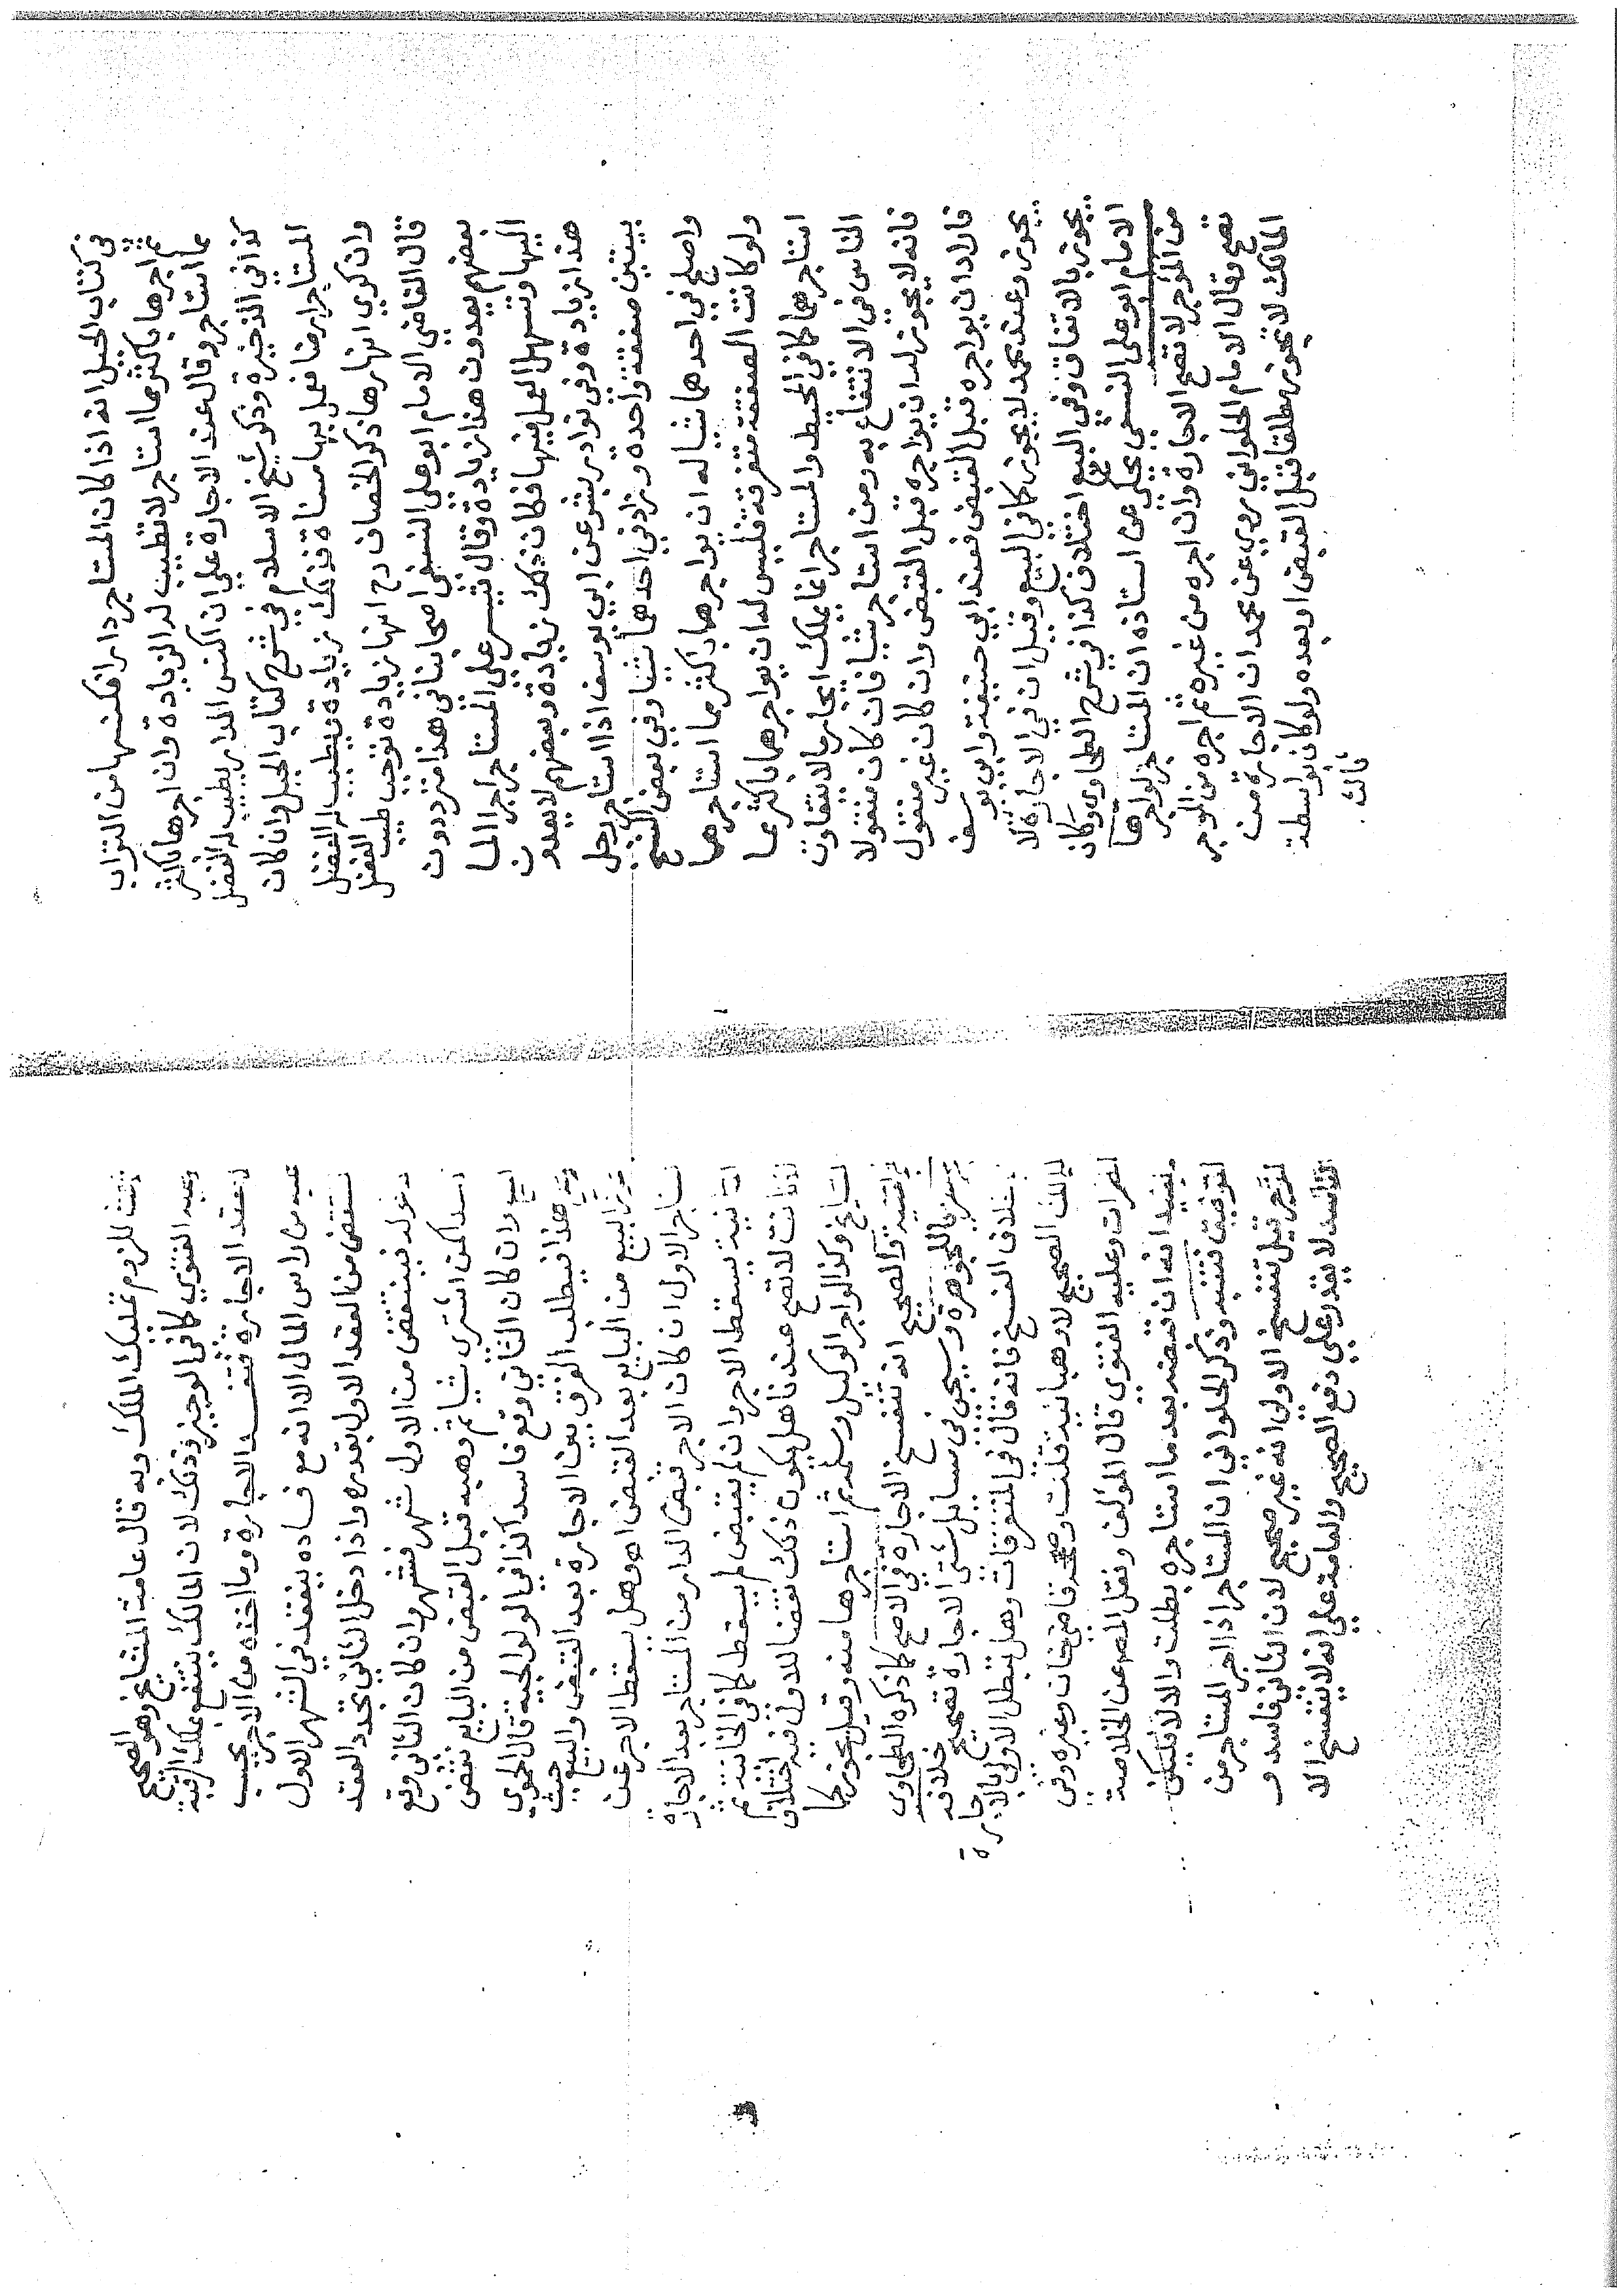 في كتاب الحيل انه اذا كان المستاجر دارا فكنسها من التراب
ثم اجرها باكثر مما استاجر لا تطيب له الزيادة وان اجرها باكثر
مما استاجر وقال عند الاجارة علي ان اكنس الدار يطيب له الفضل
كذا في الذخيرة وذكر شيخ الاسلام في شرح كتاب الحيل وان كان
المستاجر ارضا فعمل بها مسناة فذلك زيادة ويطيب له الفضل
وان كري انهارها ذكر الخصاف رح انها زيادة توجب طيب الفضل
قال القاضي الامام ابو علي النسفي اصحابنا في هذا مترددون
بعضهم يعدون هذا زيادة وقال تيسر علي المستاجر اجرا الما
اليها وتسهل العمل فيها فكان ذلك زيادة وبعضهم لا يعدون
هذا زيادة وفي نوادر بشر عن ابي يوسف اذا استاجر رجل
بيتين صفقة واحدة وزاد في احدهما شيئا وفي بعض النسخ
واصلح في احدهما شيا له ان يواجرهما باكثر مما استاجرهما
ولو كانت الصفقة متفرقة فليس له ان يواجرهما باكثر مما
استاجرهما كما في المحيط والمستاجر انما يملك ايجار ما لا يتفاوت
الناس في الانتفاع به ومن استاجر شيا فان كان منقولا
فانه لا يجوز له ان يواجره قبل القبض وان كان غير منقول
فاراد ان يواجره قبل القبض فعند ابي حنيفة وابي يوسف
يجوز وعند محمد لا يجوز كما في البيع وقيل ان في الاجارة لا
يجوز بالاتفاق وفي البيع اختلاف كذا في شرح الطحاوي وكان
الامام ابو علي النسفي يحكي عن استاذه ان المستاجر لو اجرها
من المؤجر لا تصح الاجارة وان اجره من غيره ثم اجره من الموجر
تصح وقال الامام الحلواني روي عن محمد ان الاجارة من
المالك لا تجوز مطلقا قبل القبض او بعده ولو كان بواسطة
ثالث
ثالث للزوم تمليك الملك وبه قال عامة المشايخ وهو الصحيح
وعليه الفتوي كما في الوجيز وذلك لان المالك ينتفع بملك الرقبة
لا بعقد الاجارة فتفسد الاجارة وما اخذه من الاجر يحسب
عليه من راس المال الا انه مع فساده ينعقد في الشهر الاول
فينتقض من العقد الاول بقدره واذا دخل الثاني تجدد العقد
دخوله فينتقض من الاول شهر فشهر ان كان الثاني وقع
فاسدا كمن اشتري شيا ثم وهبه قبل القبض من البايع ينتقض
البيع وان كان الثاني وقع فاسدا كذا في الولوالجية قال الحموي
وعلي هذا فيطلب الفرق بين الاجارة بعد القبض والبيع حيث
جوز البيع من البايع بعد القبض اه وهل يسقط الاجر عن
المستاجر الاول ان كان الاجر قبض الدار من المستاجر بعد الاجارة
الثانية يسقط الاجر وان لم يقبض لم يسقط كما في الخانية ثم
اذا كانت لا تصح عندنا هل يكون ذلك نقضا للاول فيه اختلاف
المشايخ وكذا لو اجر الوكيل وسلم ثم استاجرها منه وقيل يجوز كما
في القنية والصحيح انه تنفسخ الاجارة في الاصح كما ذكره الطحاوي
معزيا للجوهرة وسيجي في مسايل شتي الاجارة تصحيح خلافه
بخلاف الفسخ فانه قال في المتفرقات وهل تبطل الاولي بالاجارة
للمالك الصحيح لا وهبانية قلت وصححه قاضي خان وغيره وفي
المضمرات وعليه الفتوي قال المؤلف ونقل المص عن الخلاصة
ما يفيد انه ان قبضه بعد ما استاجره بطلت والا لا فليكن
التوفيق فتنبه وذكر الحلواني ان المستاجر اذا اجر المستاجر من
المؤجر قيل تنفسخ الاولي انه غير صحيح لان الثاني فاسد و
الفاسد لا يقدر علي دفع الصحيح والعامة علي انه لا تنفسخ الا